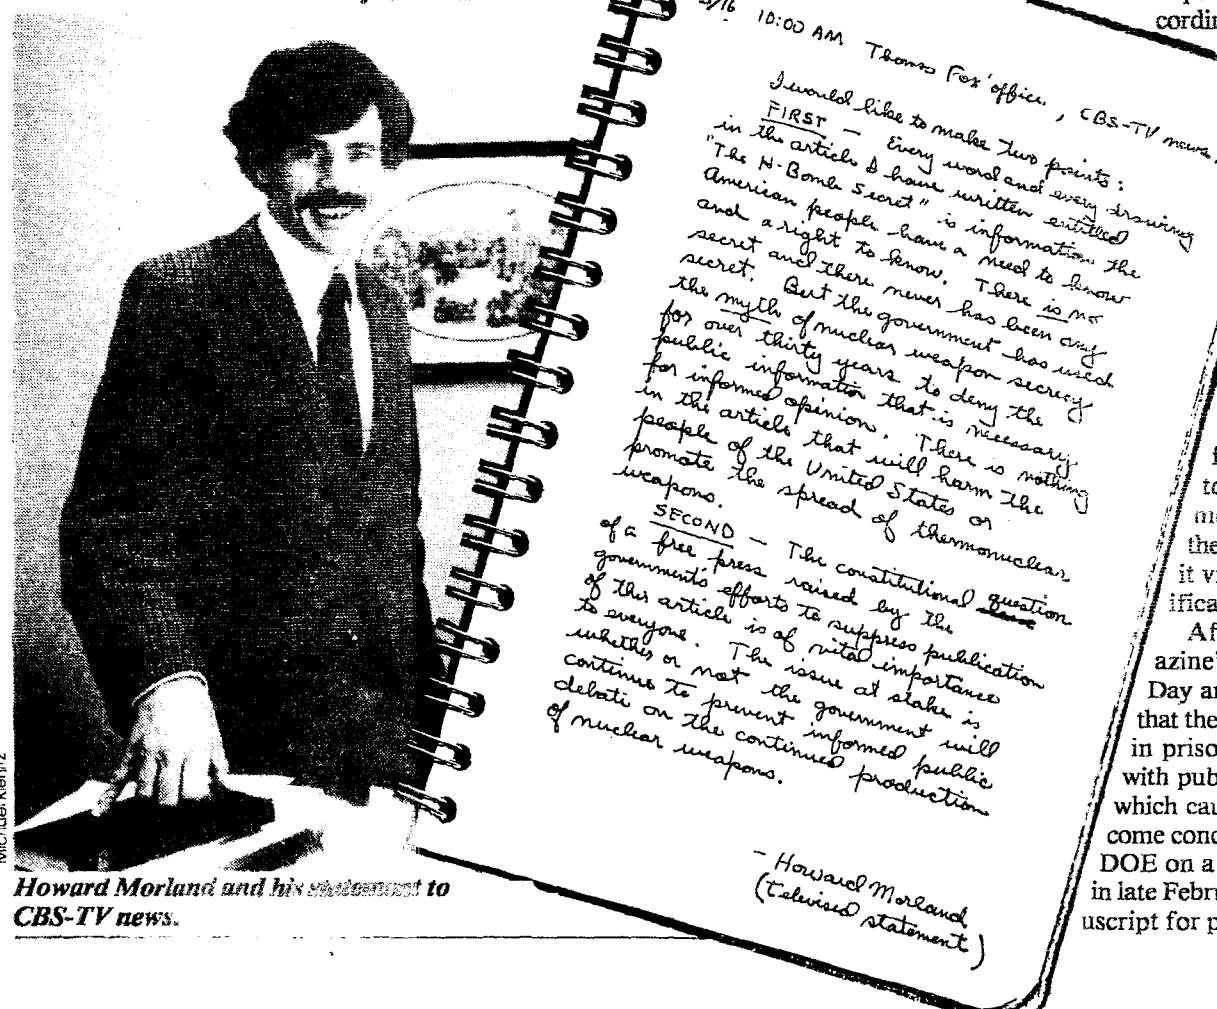 3/16 10:00 AM Thomas Fox' office, CBS-TV news.
I would like to make two points:
FIRST — Every word and every drawing
in the article I have written entitled
"The H-Bomb Secret" is information the
American people have a need to know
and a right to know. There is no
secret and there never has been any
secret. But the government has used
the myth of nuclear weapon secrecy
for over thirty years to deny the
public information that is necessary
for informed opinion. There is nothing
in the article that will harm the
people of the United States or
promote the spread of thermonuclear
weapons.
SECOND — The constitutional question
of a free press raised by the
governments' efforts to suppress publication
of this article is of vital importance
to everyone. The issue at stake is
whether or not the government will
continue to prevent informed public
debate on the continued production
of nuclear weapons.
— Howard Morland
(televised statement)
Howard Morland and his statement to
CBS-TV news.
cordin
f
to
me
the
it vi
ifica
Af
azine'
Day an
that the
in priso
with pub
which cau
come conc
DOE on a
in late Febru
uscript for p